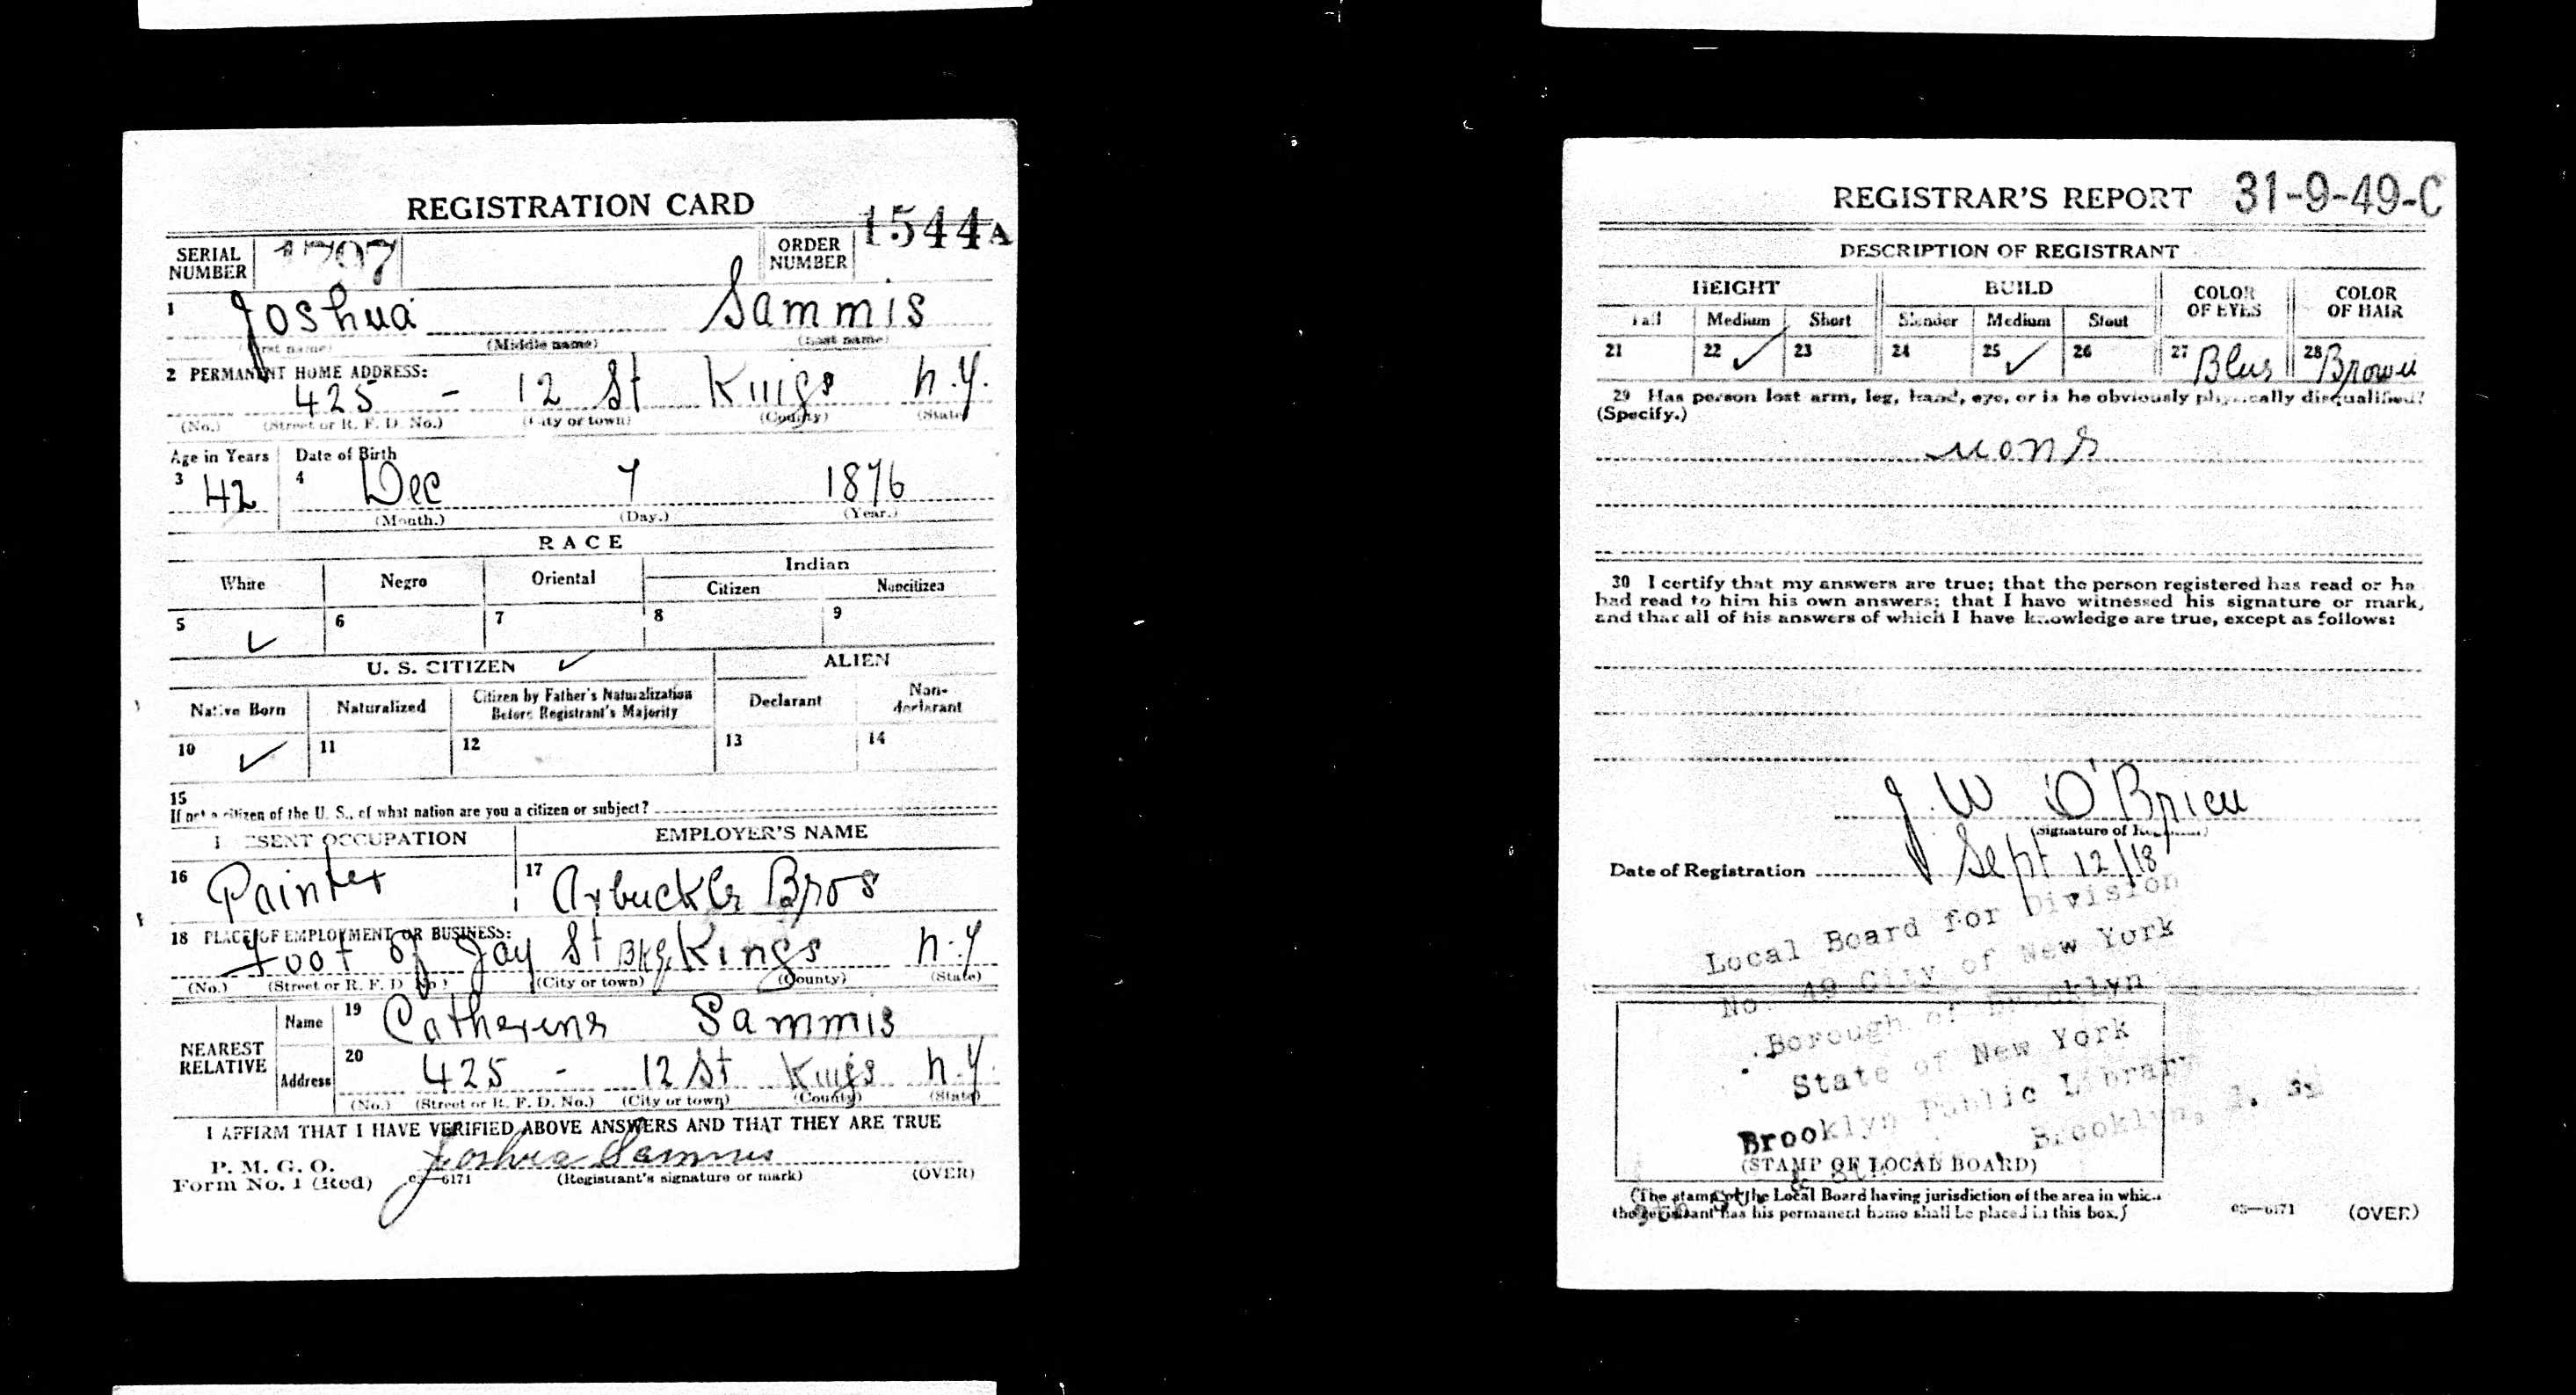 REGISTRATION CARD
SERIAL NUMBER 1797
ORDER NUMBER 1544 A
1 Joshua Sammis
(First name) (Middle name) (Last name)
2 PERMANENT HOME ADDRESS:
425 - 12 St Kings N.Y.
(No.) (Street or R. F. D. No.) (City or town) (County) (State)
Age in Years Date of Birth
3 42 4 Dec 7 1876
(Month.) (Day.) (Year.)
RACE
White Negro Oriental Indian
Citizen Noncitizen
5 ✓ 6 7 8 9
U. S. CITIZEN ✓ ALIEN
Native Born Naturalized Citizen by Father's Naturalization Before Registrant's Majority Declarant Non-declarant
10 ✓ 11 12 13 14
15
If not a citizen of the U. S., of what nation are you a citizen or subject?
PRESENT OCCUPATION EMPLOYER'S NAME
16 Painter 17 Arbuckle Bros
18 PLACE OF EMPLOYMENT OR BUSINESS:
foot of Jay St Bkly Kings N.Y
(No.) (Street or R. F. D. No.) (City or town) (County) (State)
NEAREST RELATIVE
Name 19 Catherine Sammis
Address 20 425 - 12 St Kings N.Y.
(No.) (Street or R. F. D. No.) (City or town) (County) (State)
I AFFIRM THAT I HAVE VERIFIED ABOVE ANSWERS AND THAT THEY ARE TRUE
P. M. G. O.
Form No. 1 (Red) 03—6171 Joshua Sammis (Registrant's signature or mark) (OVER)
REGISTRAR'S REPORT 31-9-49-C
DESCRIPTION OF REGISTRANT
HEIGHT BUILD COLOR OF EYES COLOR OF HAIR
Tall Medium Short Slender Medium Stout
21 22 ✓ 23 24 25 ✓ 26 27 Blue 28 Brown
29 Has person lost arm, leg, hand, eye, or is he obviously physically disqualified?
(Specify.)
none
30 I certify that my answers are true; that the person registered has read or has
had read to him his own answers; that I have witnessed his signature or mark,
and that all of his answers of which I have knowledge are true, except as follows:
J. W O'Brien
(Signature of Registrar)
Date of Registration Sept 12/18
Local Board for Division
No. 49 City of New York
Borough of Brooklyn
State of New York
Brooklyn Public Library
Brooklyn, N. Y.
(STAMP OF LOCAL BOARD)
(The stamp of the Local Board having jurisdiction of the area in which
the registrant has his permanent home shall be placed in this box.)
03—6171 (OVER)